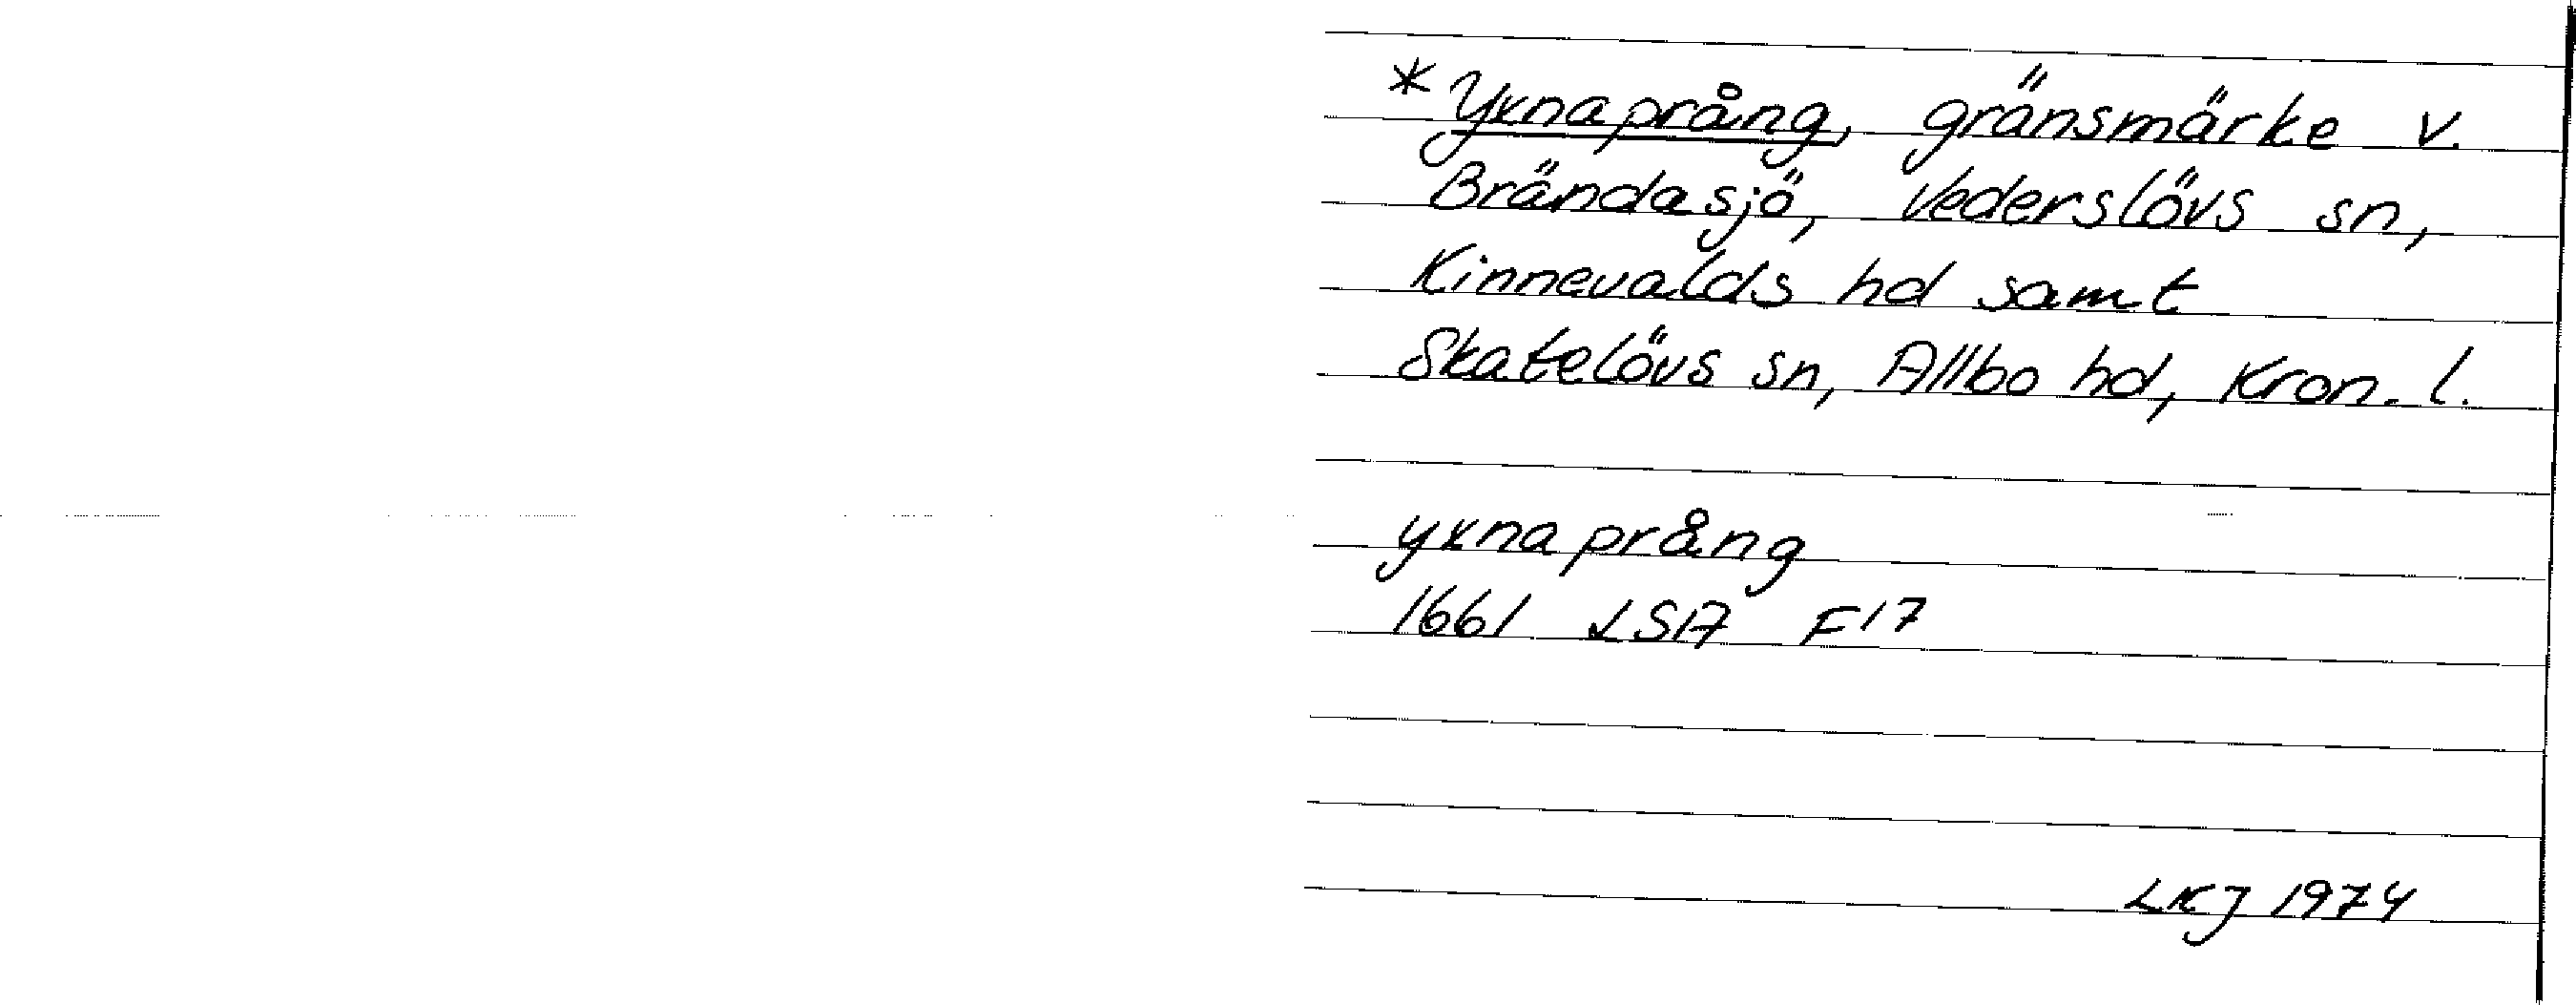 *Yxnaprång, gränsmärke v.
Brändasjö, Vederslövs sn,
Kinnevalds hd samt
Skatelövs sn, Allbo hd, Kron. l.
yxnaprång
1661 LSA F17
LKJ 1974